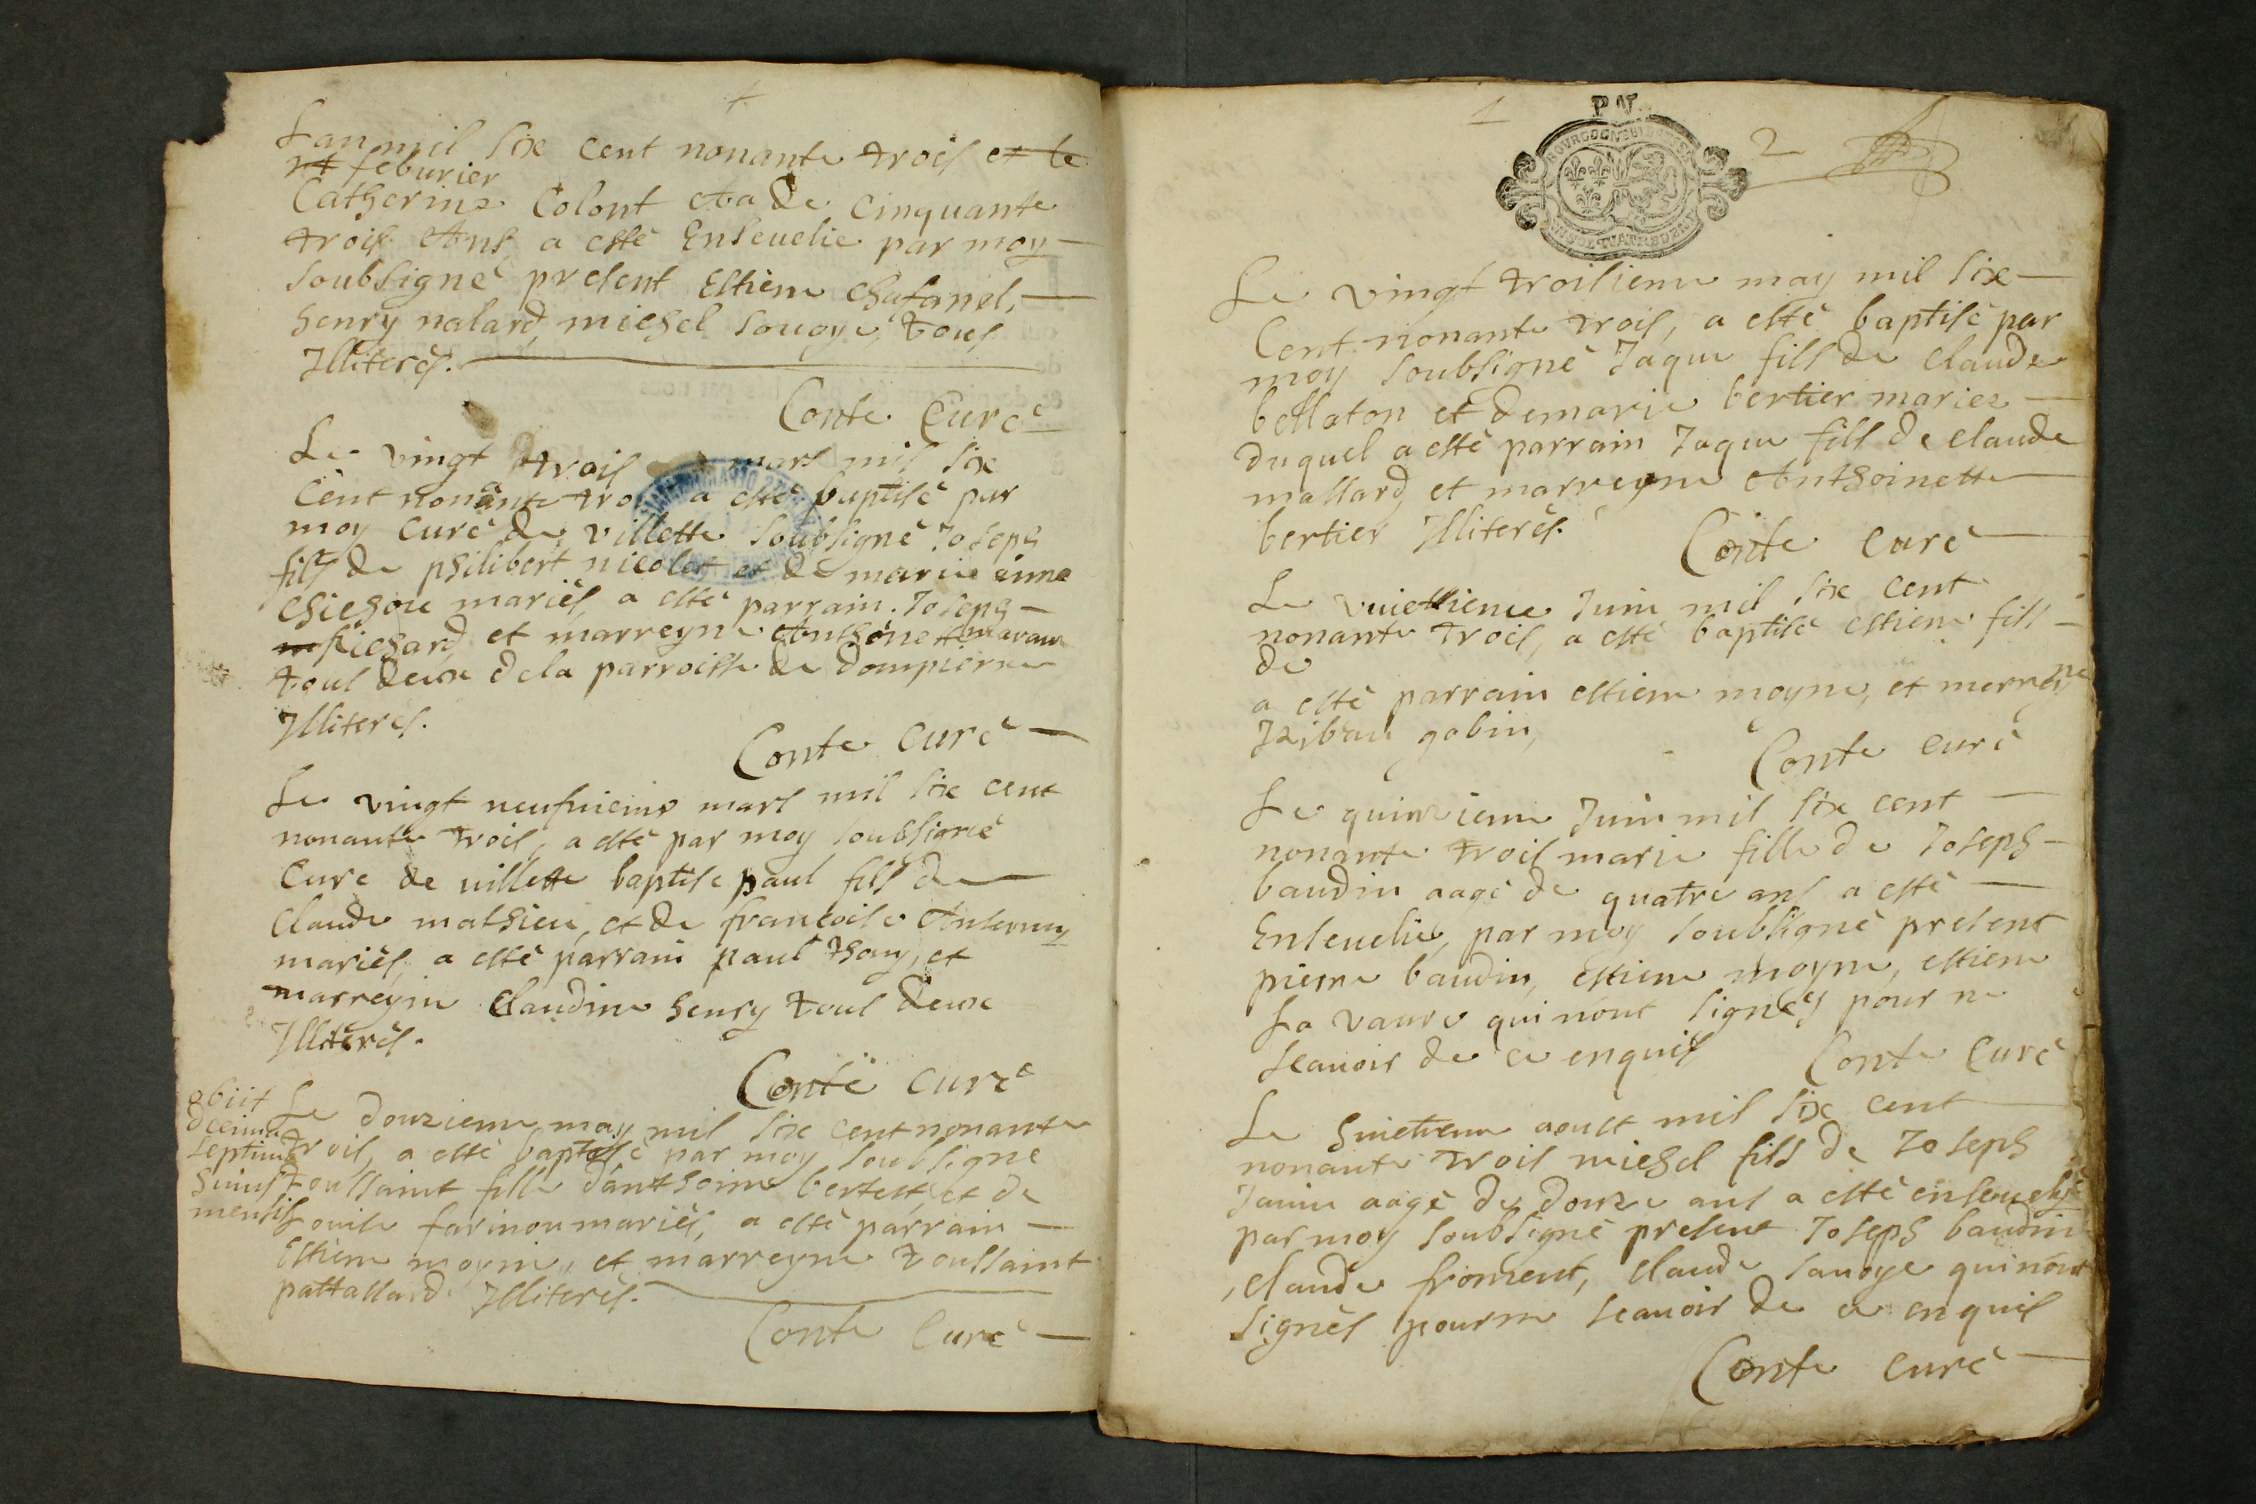 Lan mil six cent nonante trois et le
feburier
Catherine Colont Aa de cinquante
trois Ans a esté Ensevelie par moy
soubsigné present Estiene chafanel,
henry nalard, michel sovoye, tous
Illiterés.
Conte Curé
Le vingt trois mars mil six
cent nonante a esté baptisé par
moy curé de villette soubsigné Joseph
fils de philibert nicolet et de
mariés, a esté parrain Joseph
Richard, et marreyne
tous deux de la parroisse de dompierre
Illiterés.
Conte curé
Le vingt neufuieme mars mil six cent
nonante trois, a esté par moy soubsigné
Curé de villette baptisé paul fils de
Claude mathieu, et de francoise
mariés, a esté parrain paul thony, et
marreyne Claudine henry tous deux
Illiterés.
Conte curé
obiit
decima
septima
huius
mensis
Le douzieme may mil six cent nonante
trois, a esté baptisé par moy soubsigne
toussaint fille danthoine bertet, et de
Louise farinon mariés, a esté parrain
Estiene moyne, et marreyne toussaint
pattallard Illiterés.
Conte Curé
1
2
BOURGOGNE
QUATRE DEN
Le vingt troisieme may mil six
Cent nonante trois, a esté baptisé par
moy soubsigné Jaque fils de Claude
bellaton et de marie bertier mariez
duquel a esté parrain Jaque fils de claude
mallard, et marreyne Anthoinette
bertier Illiterés.
Conte curé
Le Juin mil six cent
nonante trois, a esté baptisé estiene fils
de
a esté parrain estiene moyne, et marreyne
gobin,
Conte curé
Le quinzieme Juin mil six cent
nonante trois marie fille de Joseph
baudin aagé de quatre ans a esté
Ensevelie, par moy soubsigné present
pierre baudin, estiene moyne, estiene
La vaure qui nont signés pour ne
scauoir de ce enquis
Conte Curé
Le huictieme aoust mil six cent
nonante trois michel fils de Joseph
Janin aagé de douze ans a esté ensevely
par moy soubsigné present Joseph baudin
, claude froment, Claude savoye qui nont
signés pour ne scauoir de ce enquis
Conte curé